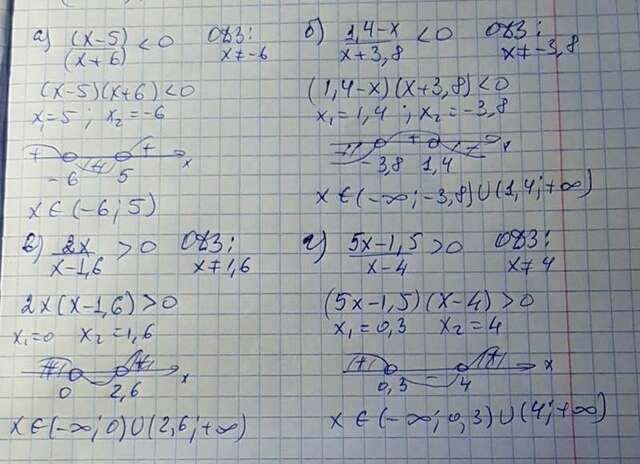 а) (x-5)/(x+6) < 0 ОДЗ: x≠-6
(x-5)(x+6) < 0
x₁=5 ; x₂=-6
+ - + x
-6 5
x∈(-6;5)
б) 1,4-x/x+3,8 < 0 ОДЗ: x≠-3,8
(1,4-x)(x+3,8) < 0
x₁=1,4 ; x₂=-3,8
- + - x
-3,8 1,4
x∈(-∞;-3,8)∪(1,4;+∞)
в) 2x/x-1,6 > 0 ОДЗ: x≠1,6
2x(x-1,6) > 0
x₁=0 x₂=1,6
+ + x
0 2,6
x∈(-∞;0)∪(2,6;+∞)
г) 5x-1,5/x-4 > 0 ОДЗ: x≠4
(5x-1,5)(x-4) > 0
x₁=0,3 x₂=4
+ - + x
0,3 4
x∈(-∞;0,3)∪(4;+∞)